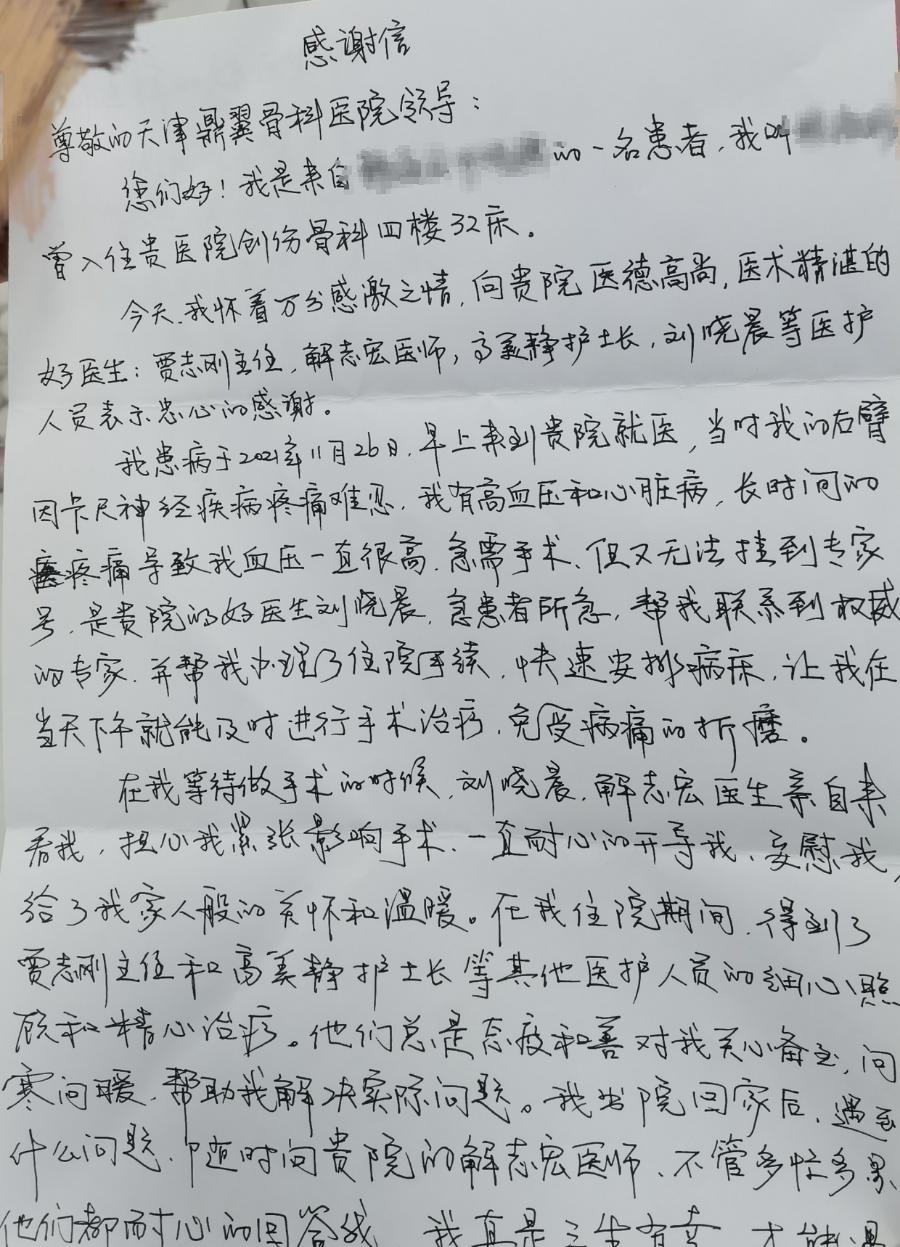 感谢信
尊敬的天津鼎翼骨科医院领导：
您们好！我是来自 的一名患者，我叫
曾入住贵医院创伤骨科四楼32床。
今天、我怀着万分感激之情，向贵院医德高尚，医术精湛的
好医生：贾志刚主任，解志宏医师，高美静护士长，刘晓晨等医护
人员表示忠心的感谢。
我患病于2021年11月26日，早上来到贵院就医，当时我的右臂
因卡尺神经疾病疼痛难忍，我有高血压和心脏病，长时间的
疼痛导致我血压一直很高，急需手术，但又无法挂到专家
号，是贵院的好医生刘晓晨，急患者所急，帮我联系到权威
的专家，并帮我办理了住院手续，快速安排病床，让我在
当天下午就能及时进行手术治疗，免受病痛的折磨。
在我等待做手术的时候，刘晓晨，解志宏医生亲自来
看我，担心我紧张影响手术，一直耐心的开导我、安慰我，
给了我家人般的关怀和温暖。在我住院期间，得到了
贾志刚主任和高美静护士长等其他医护人员的细心照
顾和精心治疗。他们总是态度和善对我关心备至，问
寒问暖，帮助我解决实际问题。我出院回家后，遇到
什么问题，随时问贵院的解志宏医师、不管多忙多累
他们都耐心的回答我 我真是三生有幸 才能遇